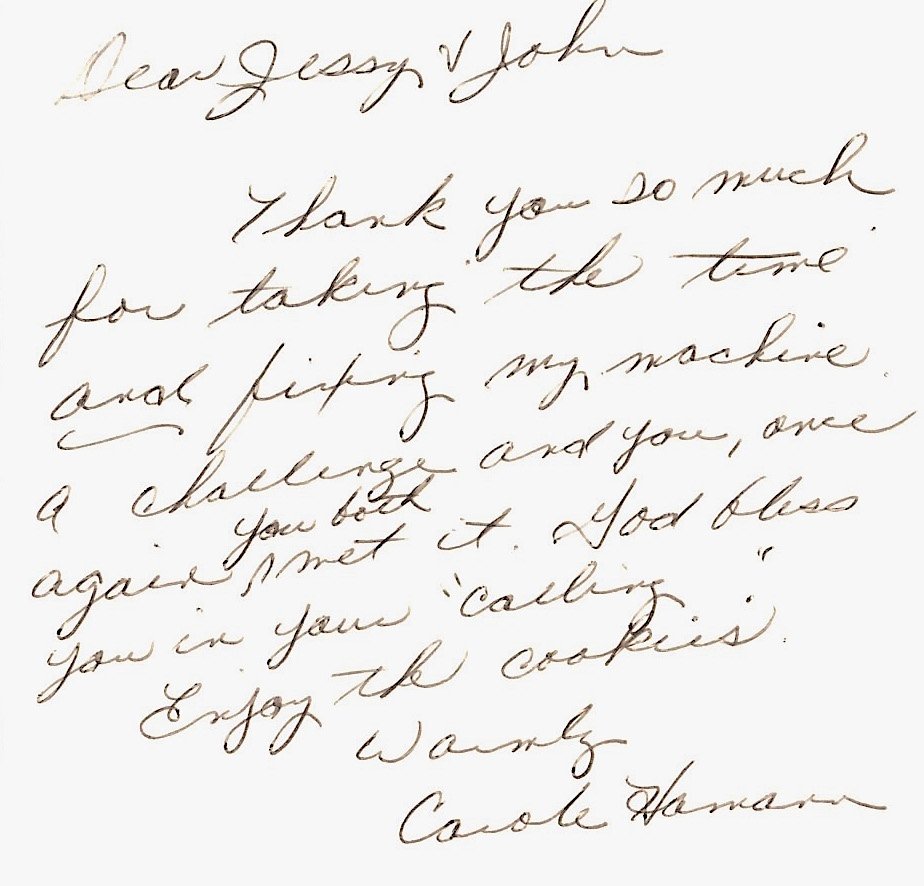 Dear Jessy & John
Thank you so much
for taking the time
and fixing my machine
a challenge and you, once
you both
again, met it. God bless
you in your "calling".
Enjoy the cookies.
Warmly
Carole Hamann